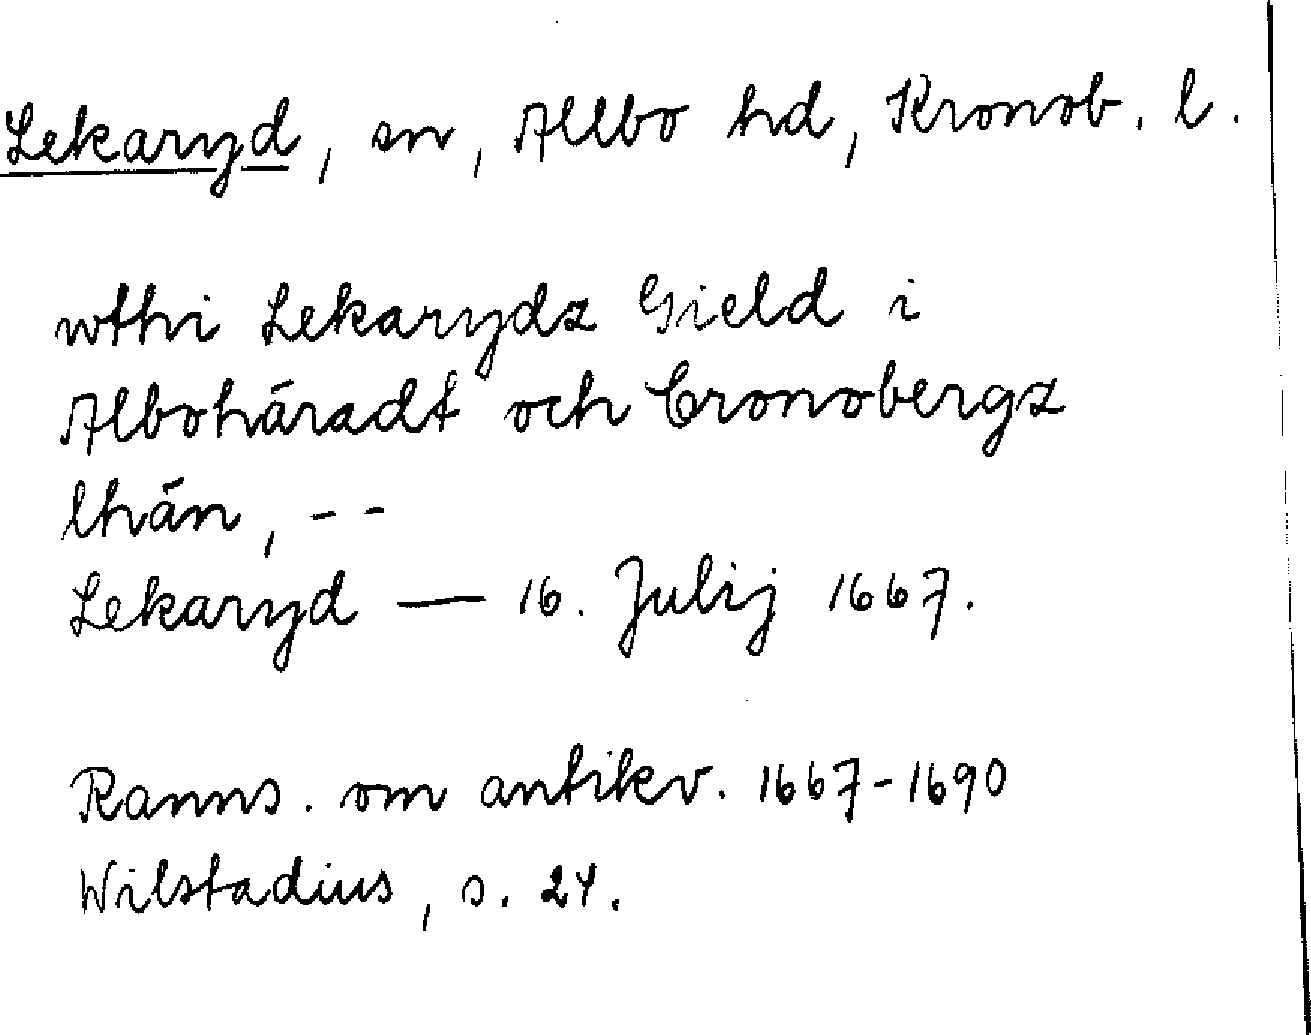 Lekaryd, sn, Allbo hd, Kronob. l.
wthi Lekarydz Gield i
Albohäradt och Cronobergz
lhän, --
Lekaryd — 16. Julij 1667.
Ranns. om antikv. 1667-1690
Wilstadius, s. 24.